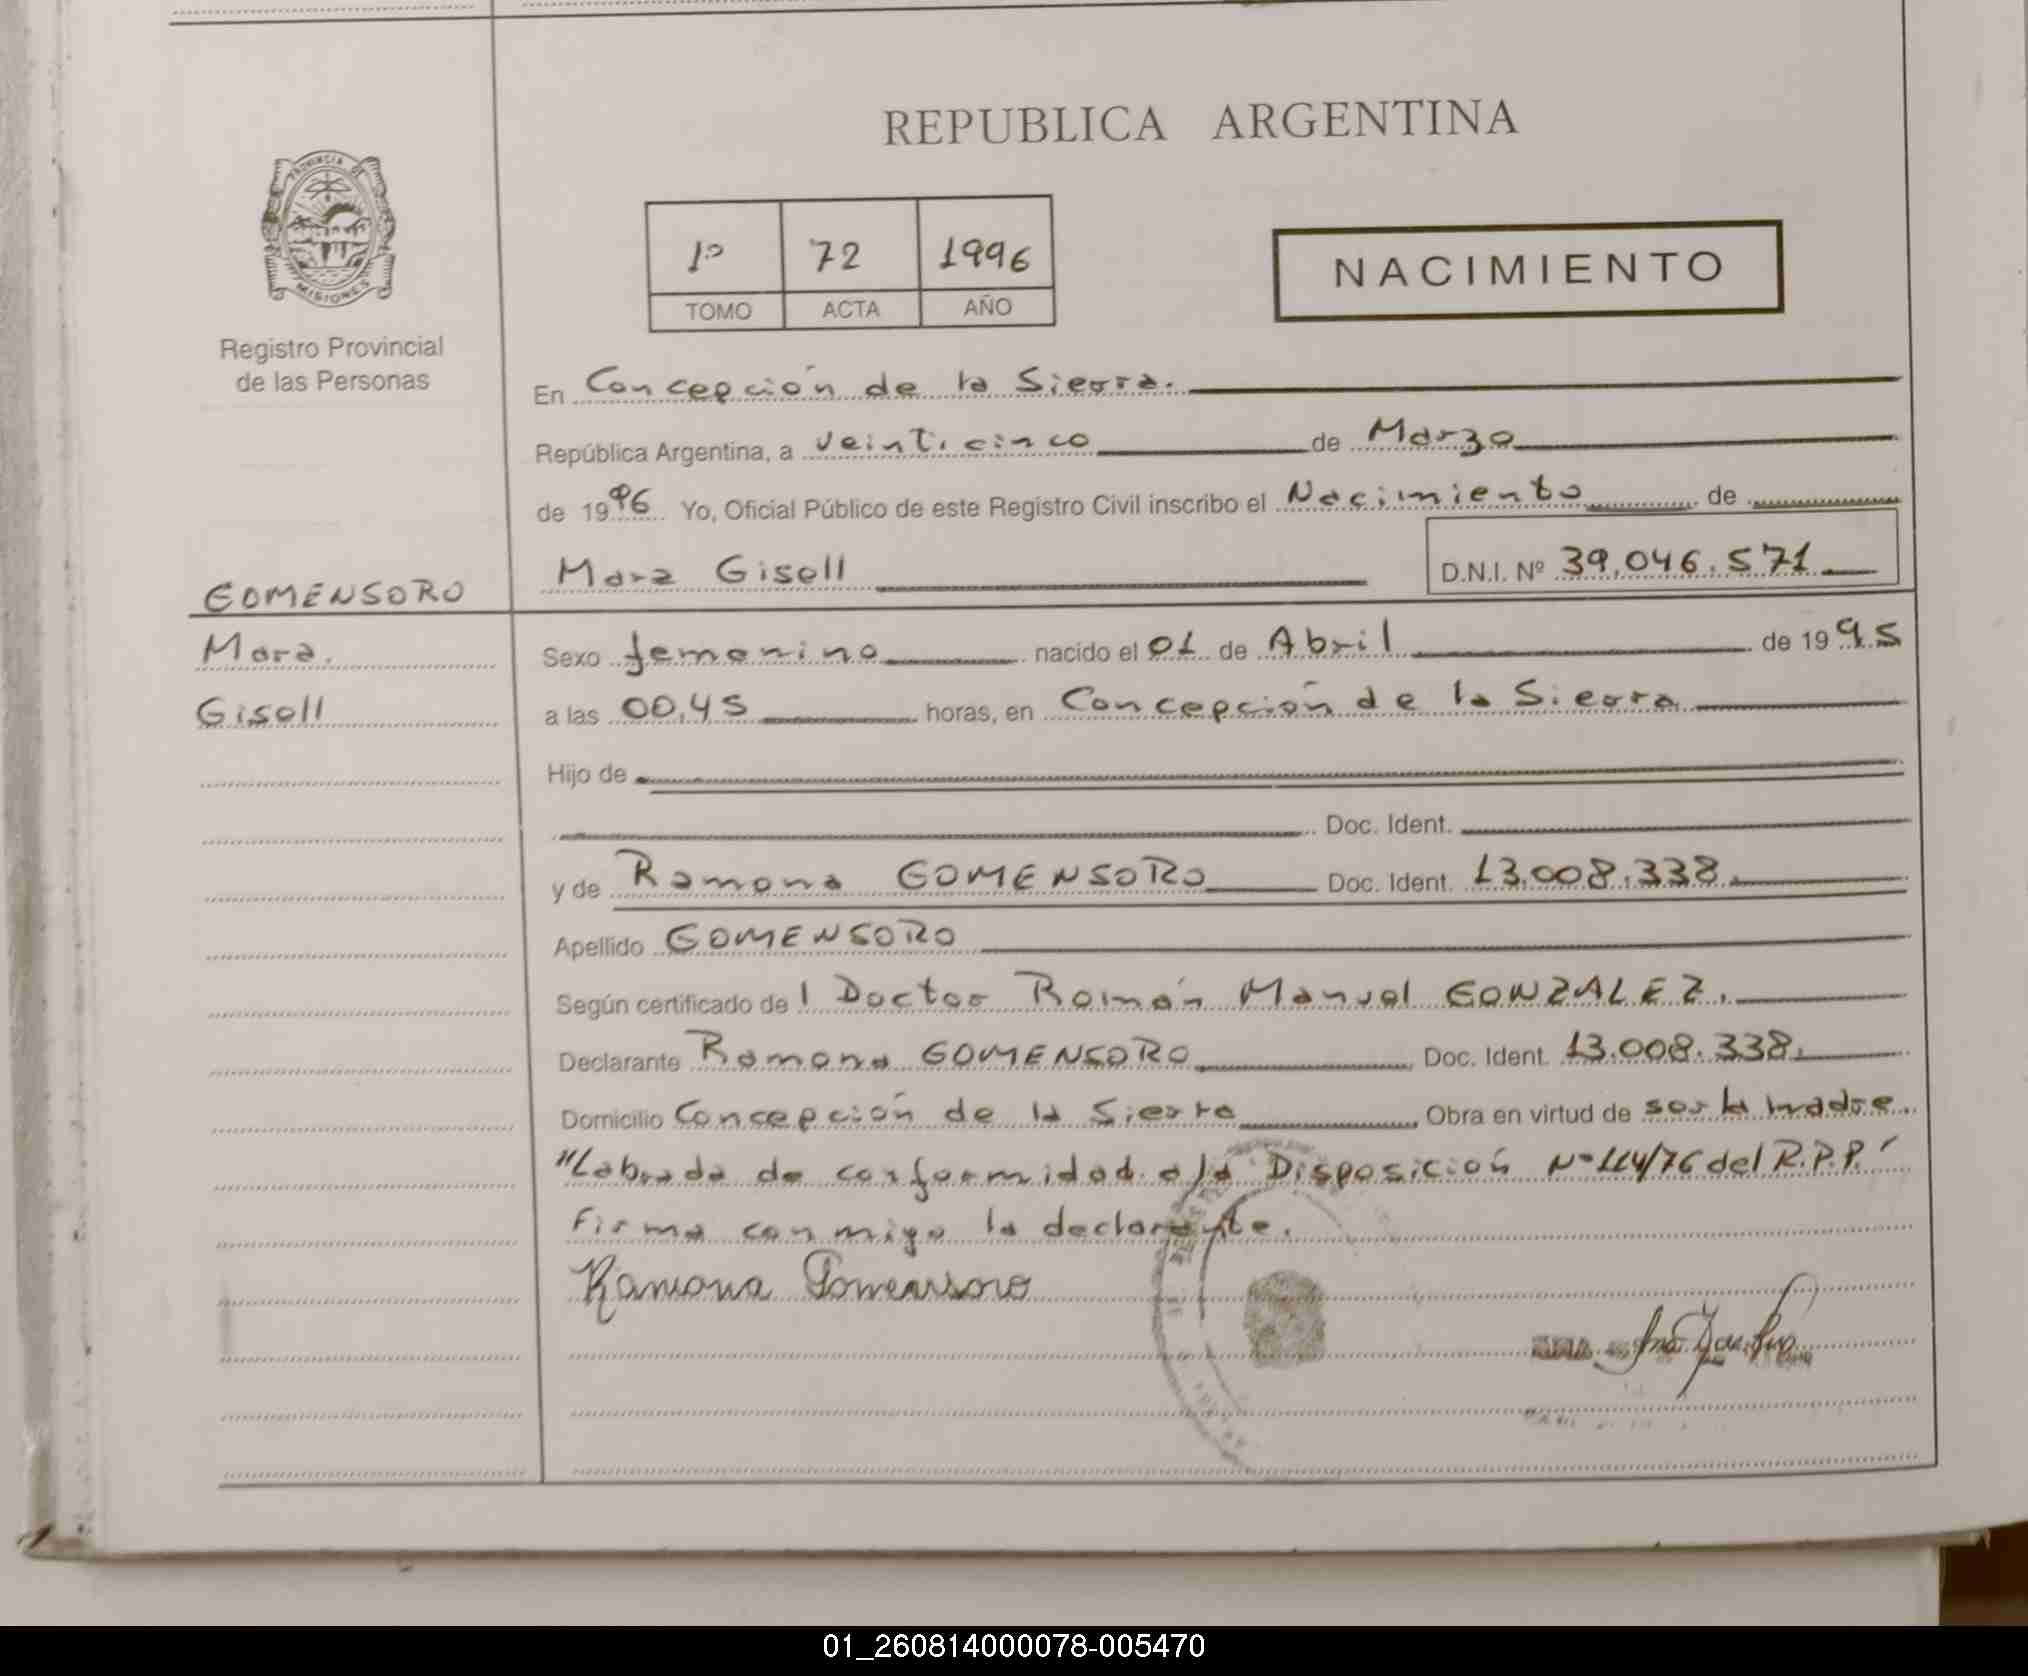 REPUBLICA ARGENTINA
PROVINCIA DE
MISIONES
Registro Provincial
de las Personas
1º 72 1996
TOMO ACTA AÑO
NACIMIENTO
En Concepción de la Sierra.
República Argentina, a veinticinco de Marzo
de 1996 Yo, Oficial Público de este Registro Civil inscribo el Nacimiento de
Mara Gisell D.N.I. Nº 39.046.571
GOMENSORO
Mara.
Gisell
Sexo femenino nacido el 01 de Abril de 1995
a las 00,45 horas, en Concepción de la Sierra
Hijo de
Doc. Ident.
y de Ramona GOMENSORO Doc. Ident. 13.008.338.
Apellido GOMENSORO
Según certificado del Doctor Román Manuel GONZALEZ.
Declarante Ramona GOMENSORO Doc. Ident. 13.008.338.
Domicilio Concepción de la Sierra Obra en virtud de ser la madre.
"Labrada de conformidad a la Disposición Nº 114/76 del R.P.P."
Firma conmigo la declarante.
Ramona Gomensoro
01_260814000078-005470